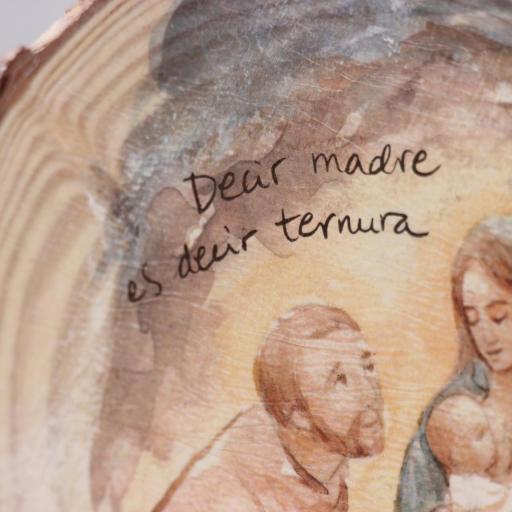 Decir madre
es decir ternura